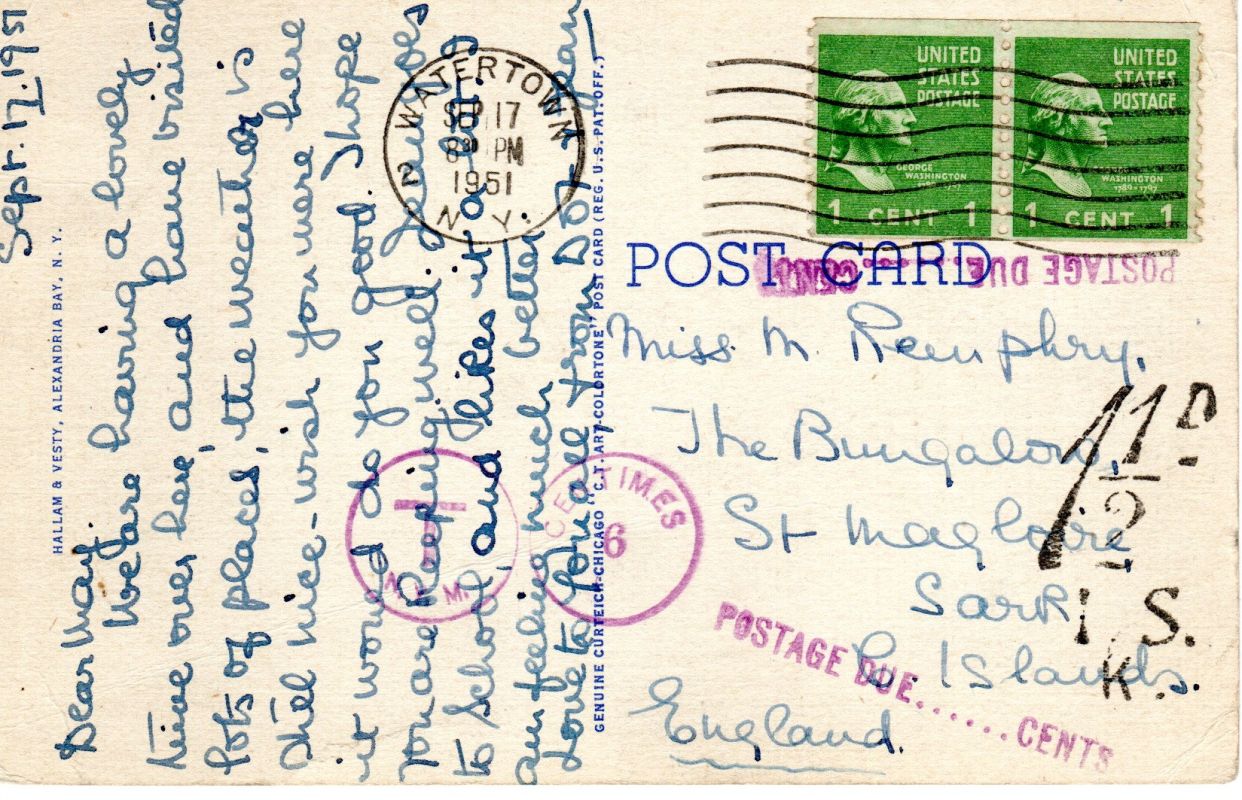 Sept. 17. 1951
Dear May.
We are having a lovely
time over here, and have visited
lots of places, the weather is
still nice - wish you were here
it would do you good. I hope
you are keeping well. Jean goes
to School, and likes it a lot. is
am feeling much better
Love to you all from Dot + Jean
HALLAM & VESTY, ALEXANDRIA BAY, N. Y.
GENUINE CURTEICH-CHICAGO "C.T. ART-COLORTONE" POST CARD (REG. U.S. PAT. OFF.)
WATERTOWN
2
SEP 17
8 30 PM
1951
N. Y.
UNITED
STATES
POSTAGE
GEORGE
WASHINGTON
1789-1797
1 CENT 1
UNITED
STATES
POSTAGE
WASHINGTON
1789-1797
1 CENT 1
POST CARD
POSTAGE DUE
Miss. M. Remphry.
The Bungalow,
St Magloire
Sark
C. Islands.
England.
1 1/2 D
I. S.
K.
T
CENTIMES
6
POSTAGE DUE......CENTS